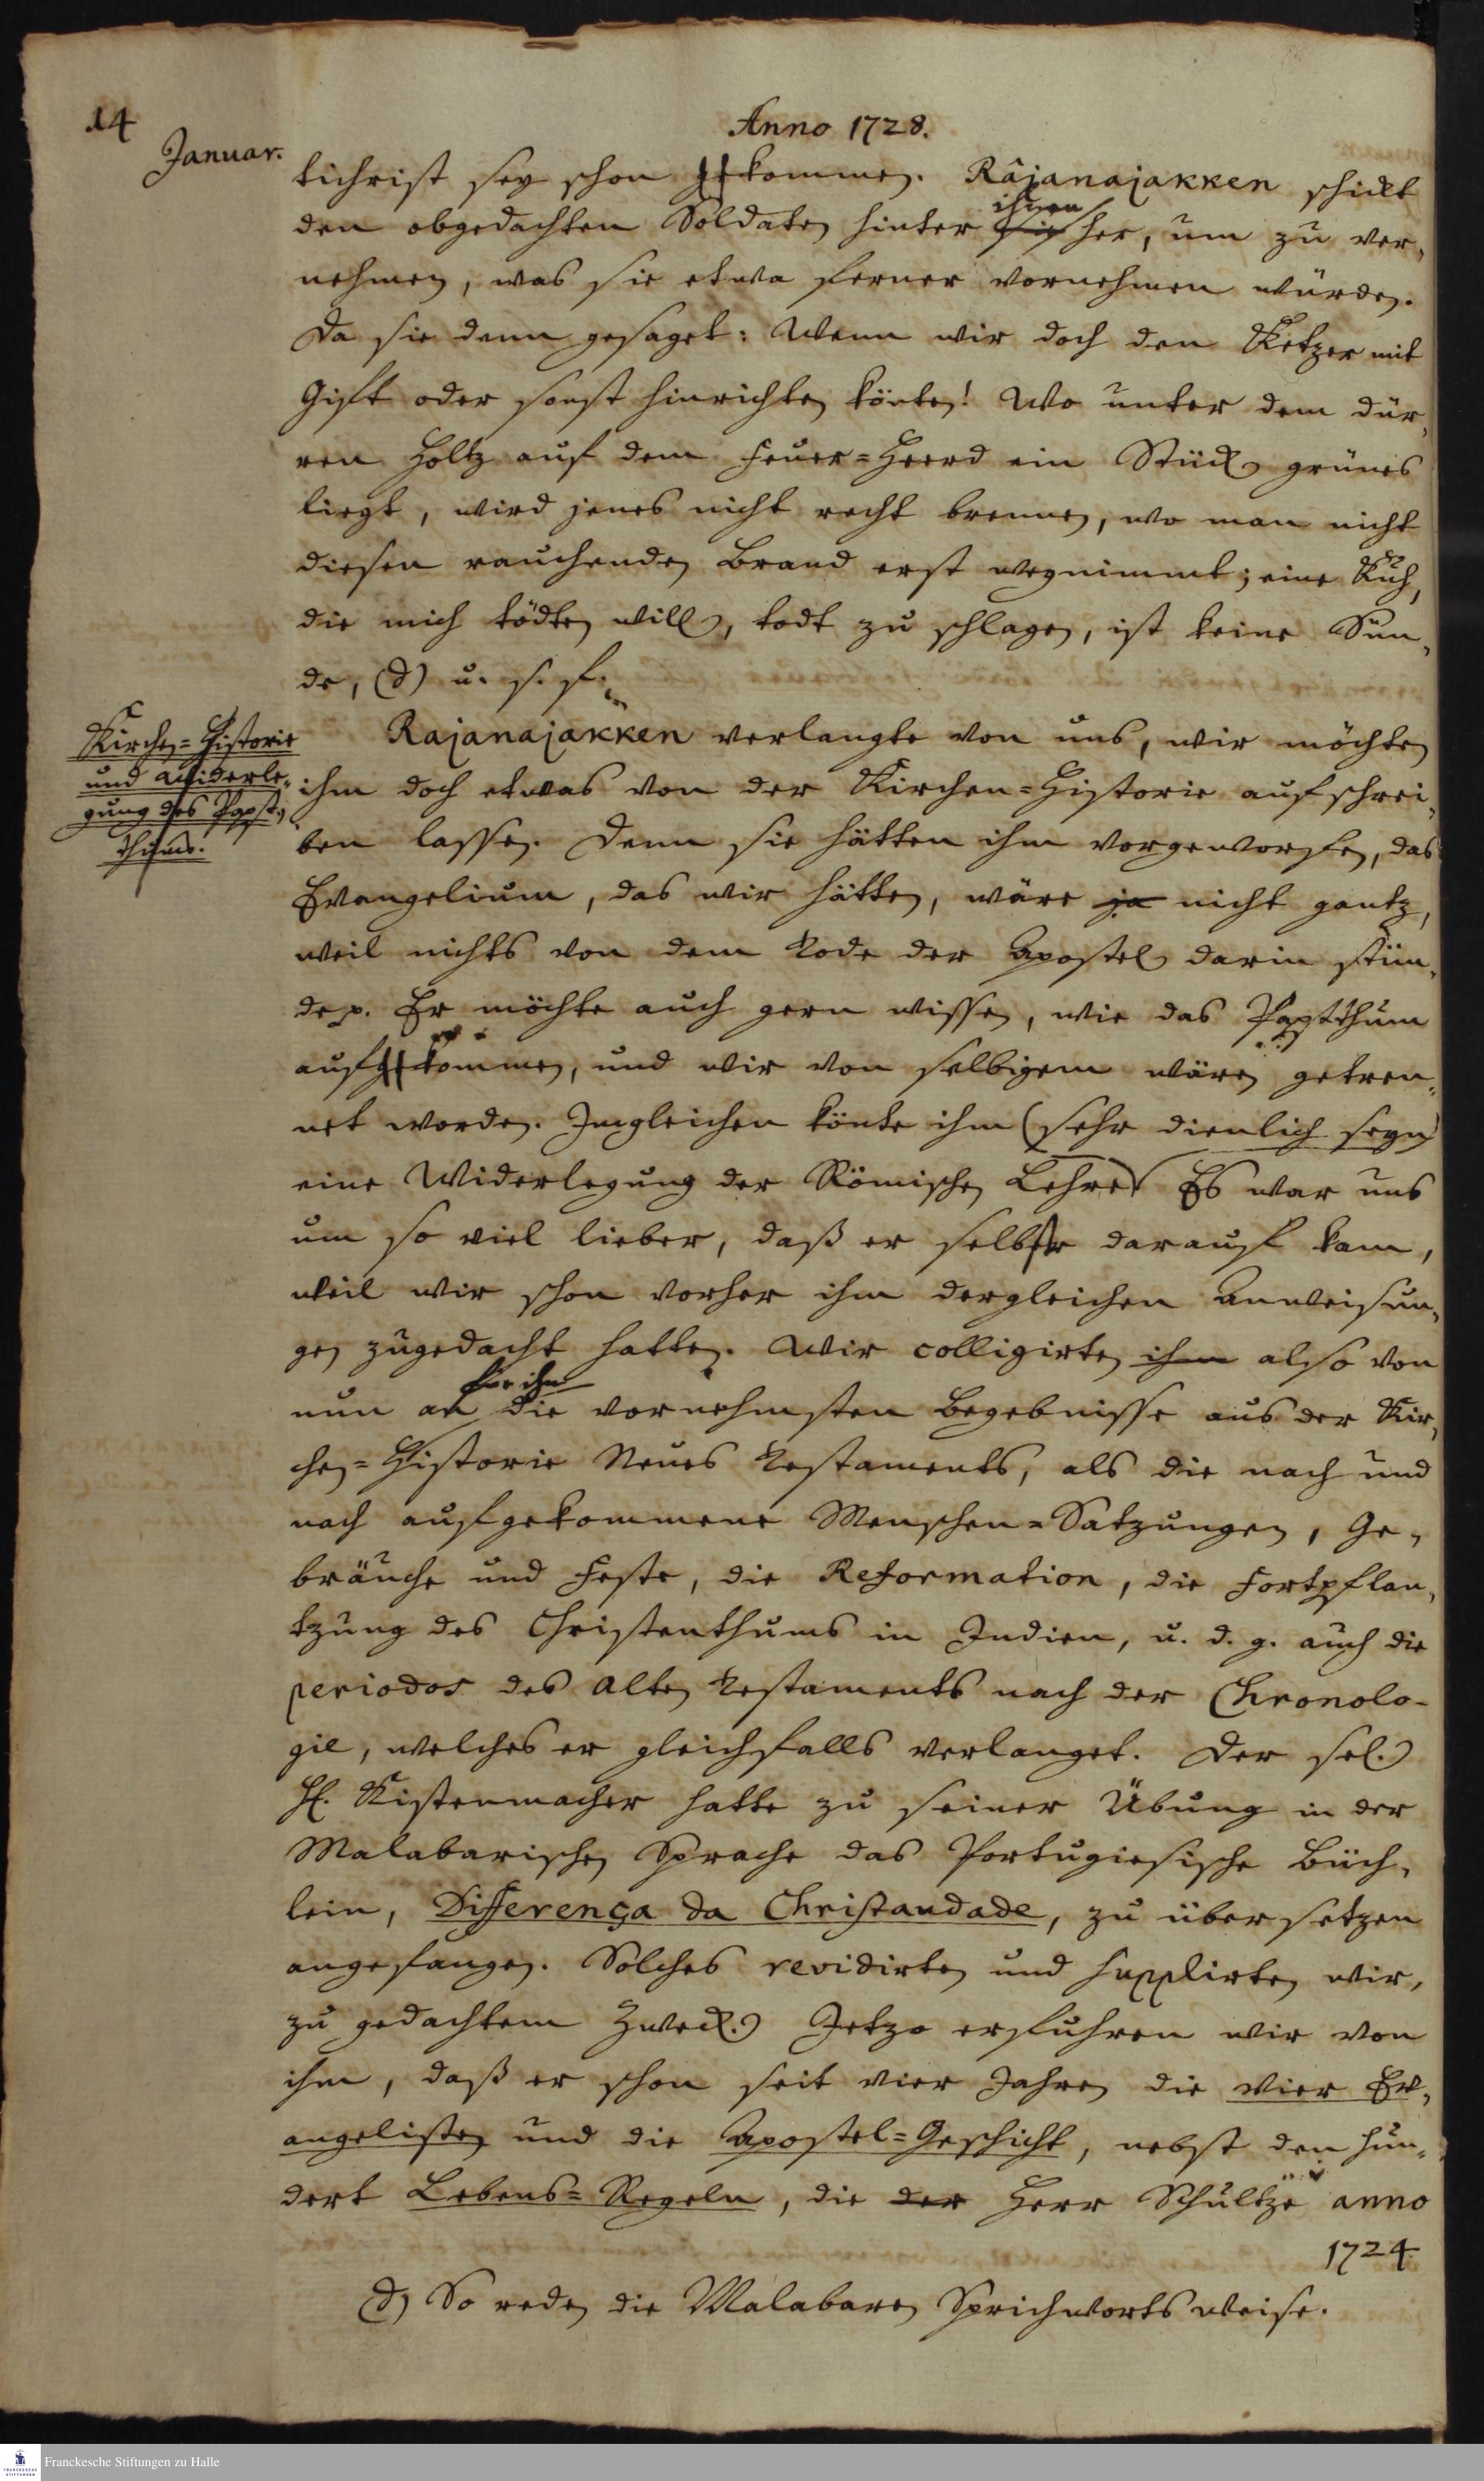 14
Januar.
Anno 1728.
tichrist sey schon gekommen. Râjanajakken schickt
den obgedachten Soldaten hinter ihnen her, um zu ver-
nehmen, was sie etwa ferner vornehmen würden.
Da sie denn gesaget: Wenn wir doch den Ketzer mit
Gift oder sonst hinrichten könten! Wo unter dem dür-
ren Holtz auf dem Feuer=Heerd ein Stück grünes
liegt, wird jenes nicht recht brennen, wo man nicht
diesen rauchenden Brand erst wegnimmt; eine Kuh,
die mich tödten will, todt zu schlagen, ist keine Sün-
de, (d) u. s. f.
Kirchen=Historie
und Widerle-
gung des Papst-
thums.
Rajanajakken verlangte von uns, wir möchten
ihm doch etwas von der Kirchen=Historie aufschrei-
ben lassen. Denn sie hätten ihm vorgeworfen, das
Evangelium, das wir hätten, wäre ja nicht gantz,
weil nichts von dem Tode der Apostel darin stün-
de p. Er möchte auch gern wissen, wie das Papstthum
aufgekommen, und wir von selbigem wären getren-
net worden. Imgleichen könte ihm (sehr dienlich seyn)
eine Widerlegung der Römischen Lehre. Es war uns
um so viel lieber, daß er selbst darauf kam,
weil wir schon vorher ihm dergleichen Anweisun-
gen zugedacht hatten. Wir colligirten ihm also von
nun an für ihn die vornehmsten Begebnisse aus der Kir-
chen=Historie Neues Testaments, als die nach und
nach aufgekommene Menschen=Satzungen, Ge-
bräuche und Feste, die Reformation, die Fortpflan-
tzung des Christenthums in Indien, u. d. g. auch die
periodos des Alten Testaments nach der Chronolo-
gie, welches er gleichfalls verlanget. Der sel.
H. Kistenmacher hatte zu seiner Übung in der
Malabarischen Sprache das Portugiesische Büch-
lein, Differença da Christandade, zu übersetzen
angefangen. Solches revidirten und supplirten wir,
zu gedachtem Zweck. Jetzo erfuhren wir von
ihm, daß er schon seit vier Jahren die vier Ev-
angelisten und die Apostel=Geschicht, nebst den hun-
dert Lebens=Regeln, die der Herr Schultze anno
1724
(d) So reden die Malabaren Sprichworts weise.
Franckesche Stiftungen zu Halle